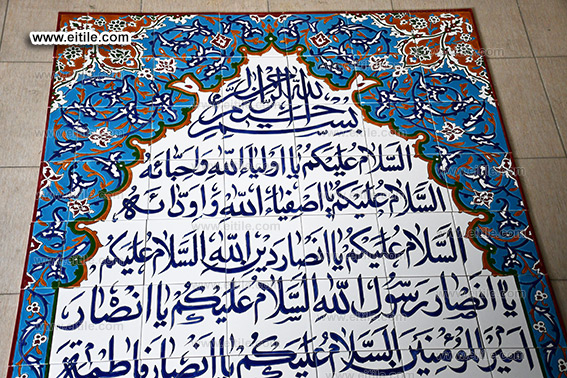 www.eitile.com
بسم الله الرحمن الرحیم
السلام علیکم یا اولیاء الله و احبائه
السلام علیکم یا اصفیاء الله و اودائه
السلام علیکم یا انصار دین الله السلام علیکم
یا انصار رسول الله السلام علیکم یا انصار
امیر المؤمنین السلام علیکم یا انصار فاطمة